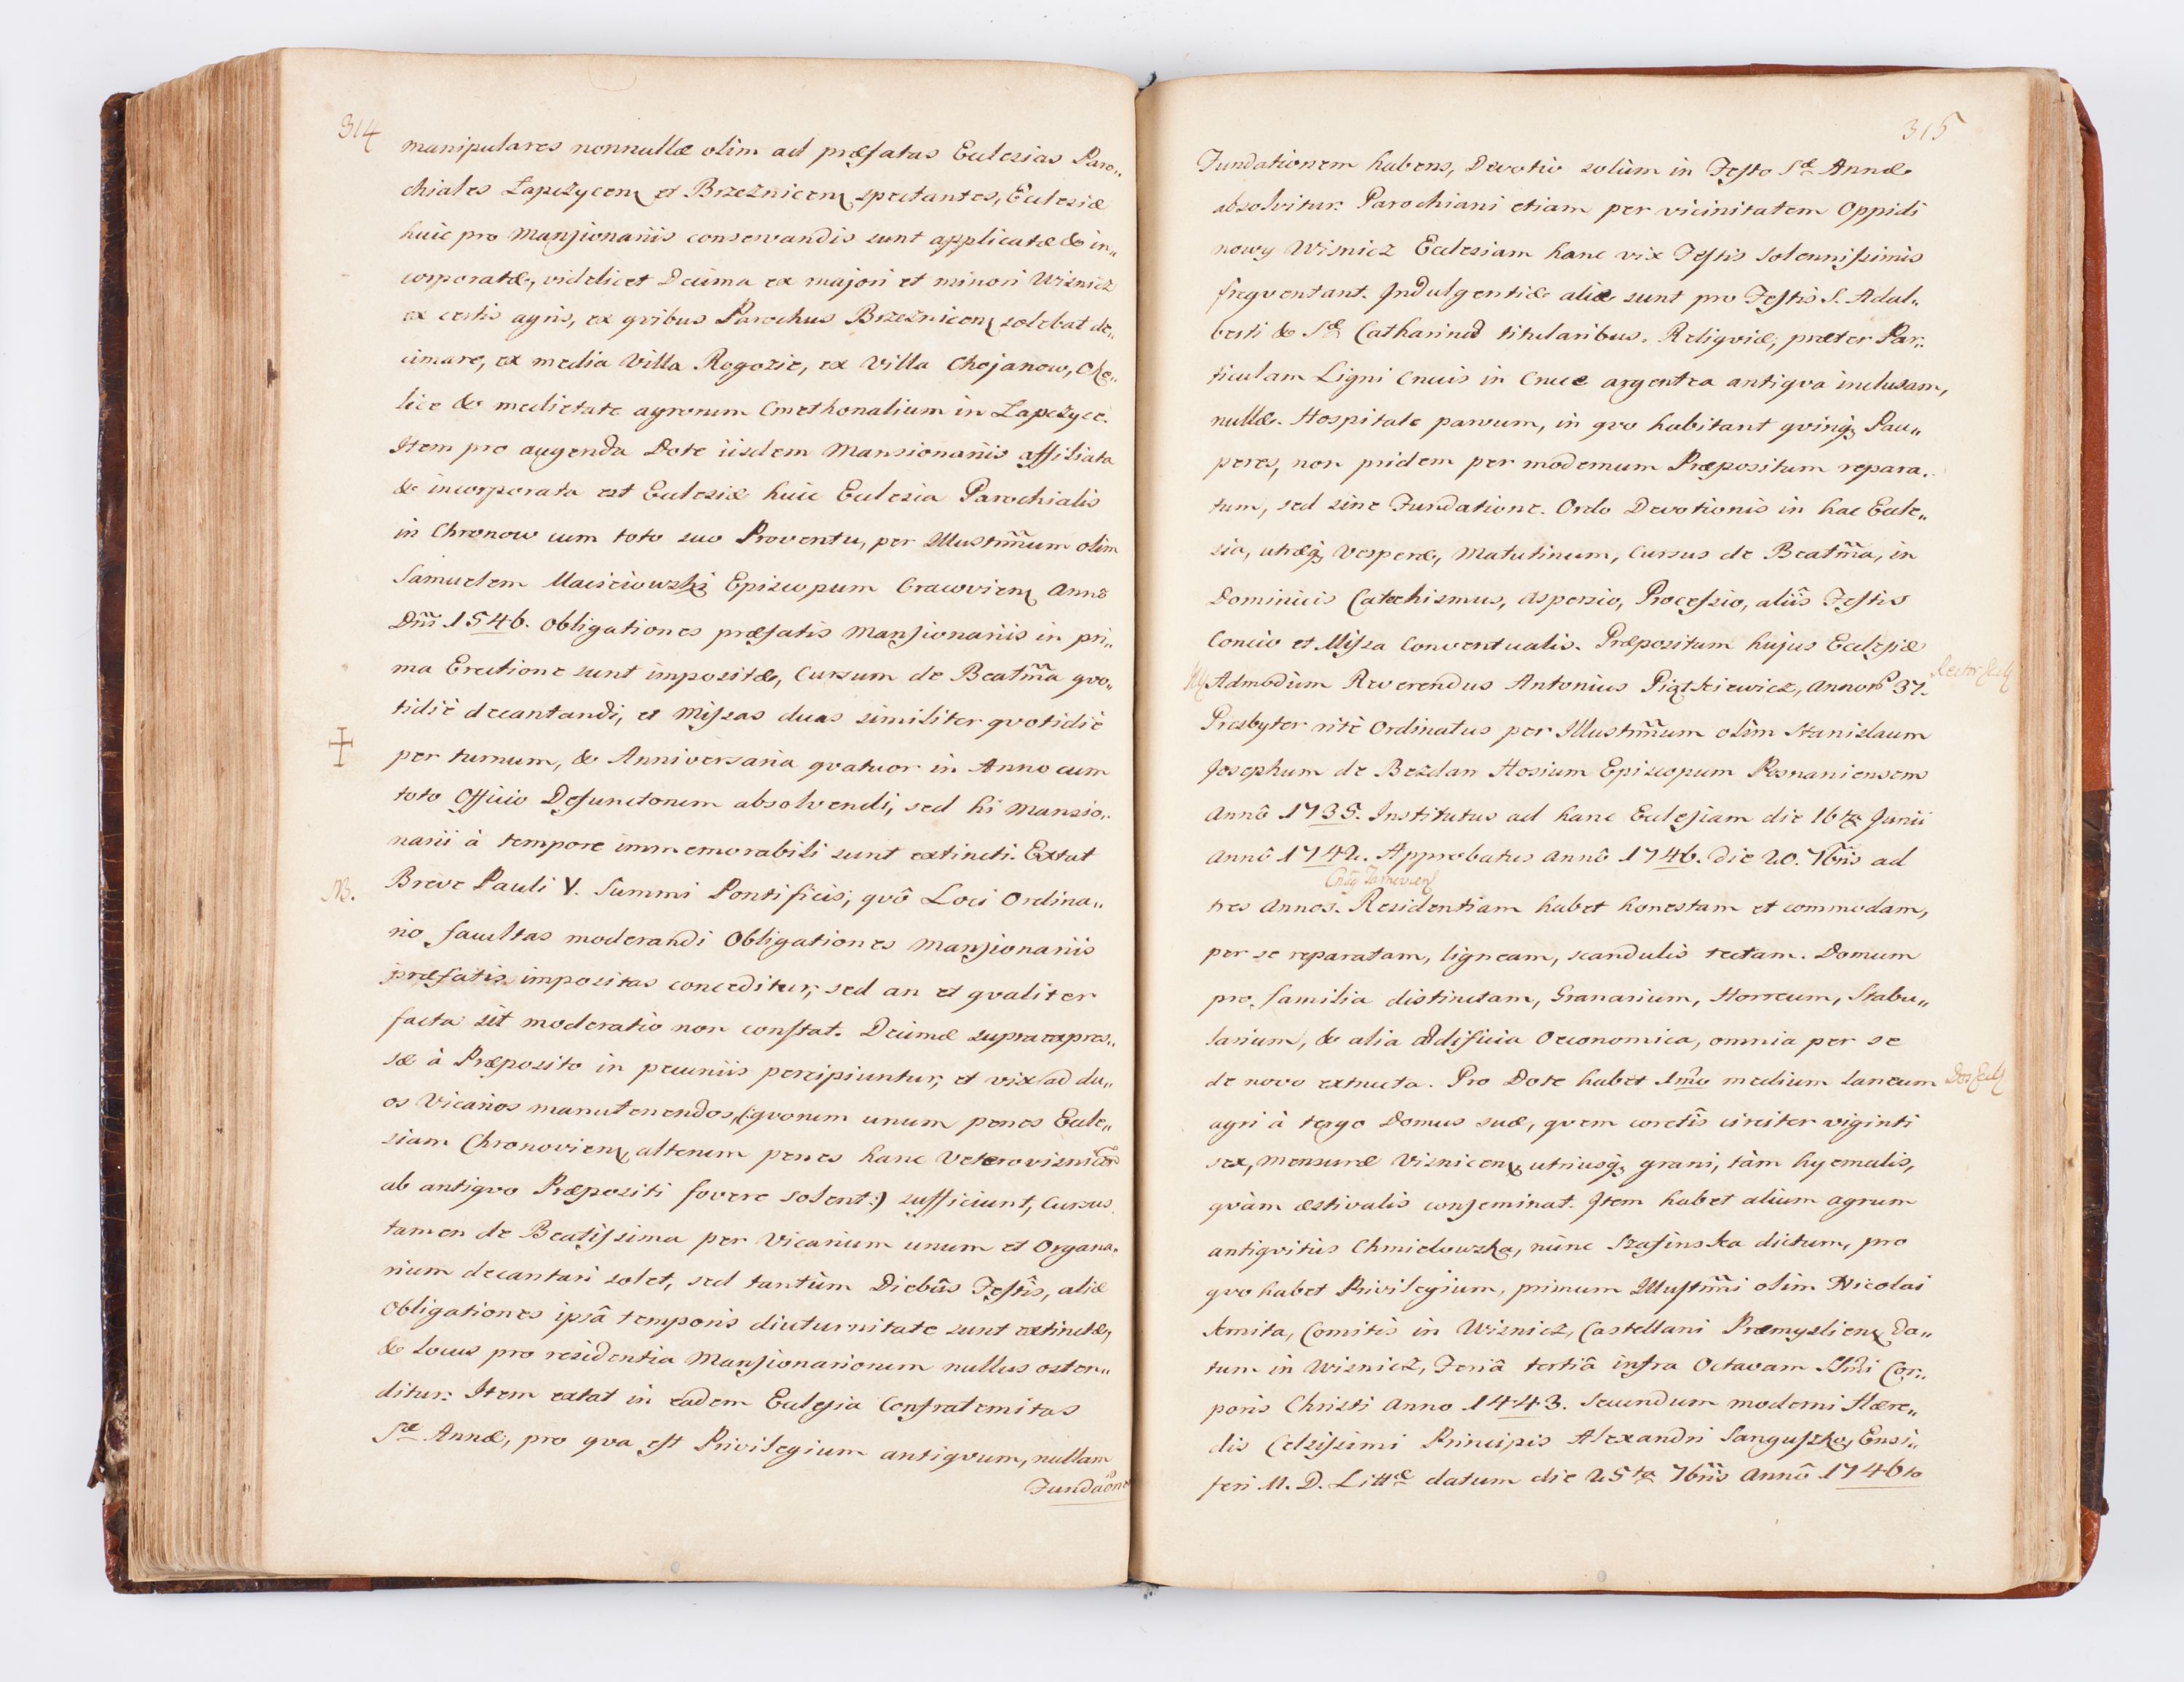 314
manipulares nonnullæ olim ad præfatas Ecclesias Paro„
chiales Łapczycen et Brzeźnicen spectantes, Ecclesiæ
huic pro Mansionariis conservandis sunt applicatæ & in„
corporatæ, videlicet Decima ex majori et minori Wisnicz
ex certis agris, ex qvibus Parochus Brzeźnicen solebat de„
cimare, ex media Villa Rogozie, ex Villa Chojanow, Che„
lice & medietate agrorum Cmethonalium in Łapczyce.
Item pro augenda Dote iisdem Mansionariis affiliata
& incorporata est Ecclesiæ huic Ecclesia Parochialis
in Chronow cum toto suo Proventu, per Illustm̃um olim
Samuelem Maieiowski Episcopum Cracovien Anno
Dn̄i 1546. Obligationes præfatis Mansionariis in pri„
ma Erectione sunt impositæ, Cursum de Beatm̃a qvo„
tidiè decantandi, et Missas duas similiter qvotidiè
per turnum, & Anniversaria qvatuor in Anno cum
toto Officio Defunctorum absolvendi, sed hi Mansio„
narii à tempore immemorabili sunt extincti. Extat
NB.
Breve Pauli V. Summi Pontificis, qvô Loci Ordina„
rio facultas moderandi Obligationes Mansionariis
præfatis impositas conceditur, sed an et qvaliter
facta sit moderatio non constat. Decimæ supraexpres„
sæ à Præposito in pecuniis percipiuntur, et vix ad du„
os Vicarios manutenendos, (:qvorum unum penes Eccle„
siam Chronovien, alterum penes hanc Veterovisnicen
ab antiqvo Præpositi fovere solent:) sufficiunt, Cursus
tamen de Beatissima per Vicarium unum et Organa„
rium decantari solet, sed tantùm Diebûs Festîs, aliæ
Obligationes ipsâ temporis diuturnitate sunt extinctæ,
& Locus pro residentia Mansionariorum nullus osten„
ditur. Item extat in eadem Ecclesia Confraternitas
Sæ Annæ, pro qva est Privilegium antiqvum, nullam
Fundaõne
315
Fundationem habens, Devotio solùm in Festo Sæ Annæ
absolvitur. Parochiani etiam per vicinitatem Oppidi
nowy Wisnicz Ecclesiam hanc vix Festis Solennissimis
freqventant. Indulgentiæ aliæ sunt pro Festis S. Adal„
berti & Sæ Catharinæ titularibus. Reliqviæ, præter Par„
ticulam Ligni Crucis in Cruce argentea antiqva inclusam,
nullæ. Hospitale parvum, in qvo habitant qvinq; Pau„
peres, non pridem per modernum Præpositum repara„
tum, sed sine Fundatione. Ordo Devotionis in hac Eccle„
sia, utræq; Vesperæ, Matutinum, Cursus de Beatm̃a, in
Dominicis Catechismus, Aspersio, Processio, aliis Festis
Concio et Missa Conventualis. Præpositum hujus Ecclesiæ
Admodùm Reverendus Antonius Piątkiewicz, Annor̃ 37.
Rector Eccl
Presbyter ritè Ordinatus per Illustm̃um olim Stanislaum
Josephum de Bezdan Hosium Episcopum Posnaniensem
Annô 1735. Institutus ad hanc Ecclesiam die 16ta Junii
Annô 1742. Approbatus Annô 1746. die 20. 7bris ad
tres Annos. Residentiam habet honestam et commodam,
per se reparatam, ligneam, scandulis tectam. Domum
pro familia distinctam, Granarium, Horreum, Stabu„
larium, & alia ædificia Oeconomica, omnia per se
de novo extructa. Pro Dote habet 1mo medium laneum
Dos Eccl
agri à tergo Domus suæ, qvem coretîs circiter viginti
sex, mensuræ Visnicen, utriusq; grani, tàm hyemalis,
qvàm æstivalis conseminat. Item habet alium agrum
antiqvitùs Chmielowska, nunc Szafinska dictum, pro
qvo habet Privilegium, primum Illustm̃i olim Nicolai
Kmita, Comitis in Wisnicz, Castellani Præmyslien, da„
tum in Wisnicz, Feriâ tertiâ infra Octavam SSmi Cor„
poris Christi Anno 1443. Secundum moderni Hære„
dis Celsissimi Principis Alexandri Sanguszko, Ensi„
feri M. D. Littæ datum die 25ta 7bris Annô 1746to